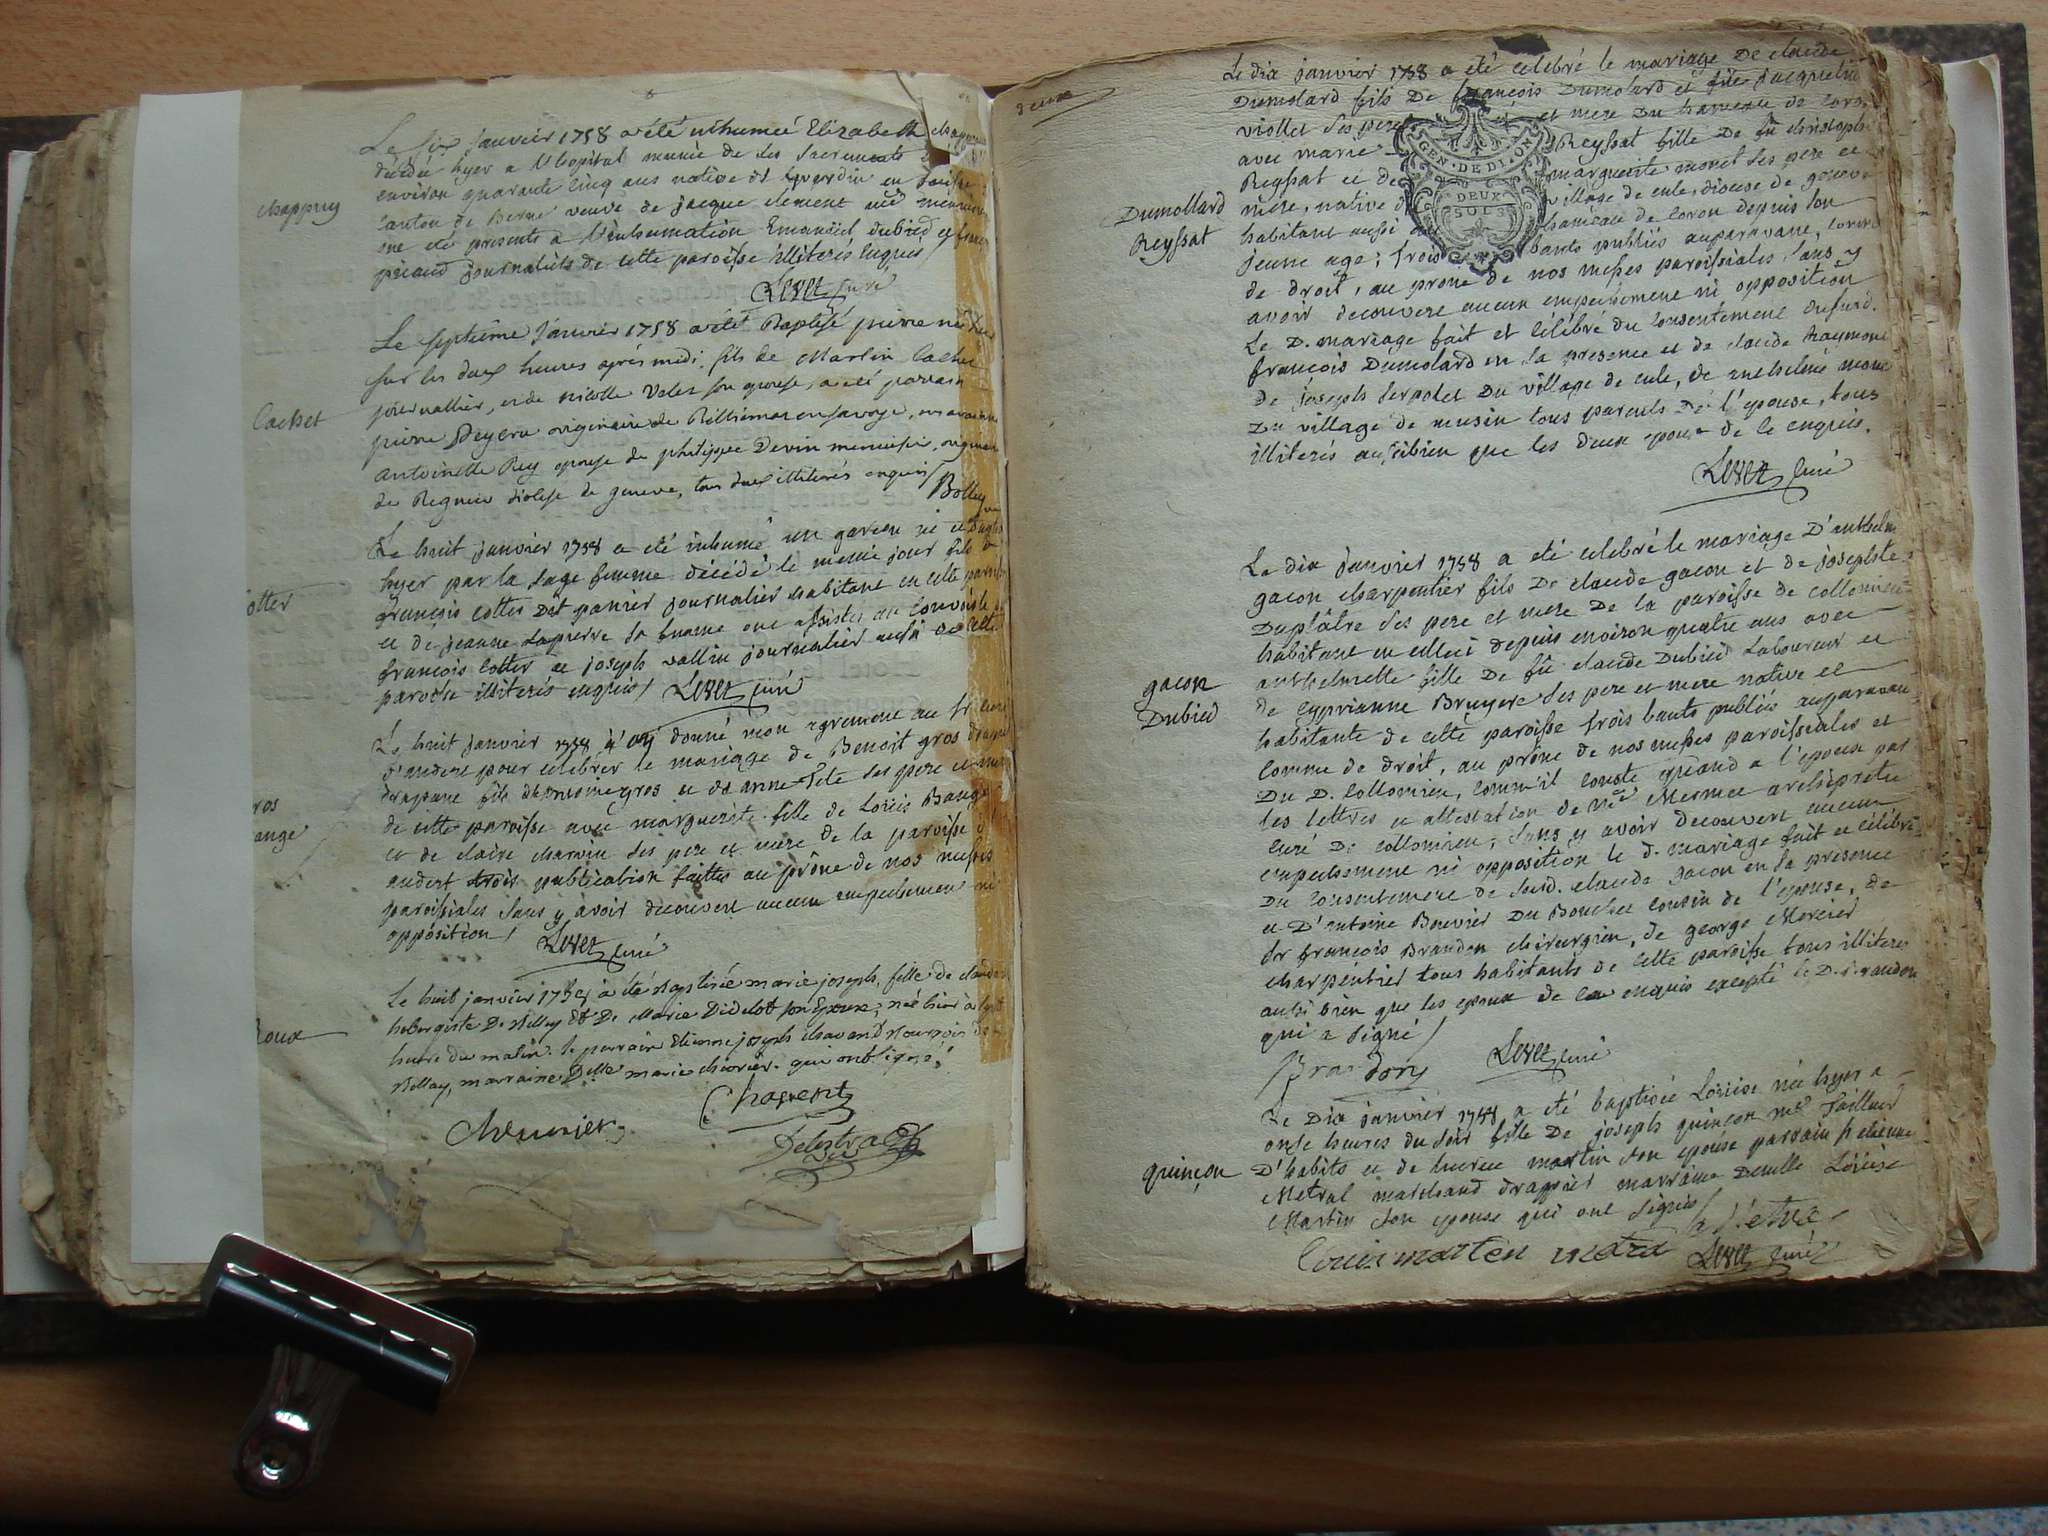 Le six Janvier 1758 a été inhumeé Elizabeth chappuy
décédée hyer a l'hopital munie de ses Sacrements
environ quarante cinq ans native d' yverdin en Suisse
chappuy
canton de Berne veuve de jacque clement
ont été presents a l'inhumation Emanüel dubied et
journaliers de cette paroisse illiterés enquis
Levet curé
Le septième Janvier 1758 a été Baptisé pierre né hier
sur les deux heures après midi, fils de Martin Cachet
journallier, et de nicolle Velet son épouse, a été parrain
Cachet
pierre originaire de en savoye, marraine
antoinette Rey epouse de philippe Devin menuisier, originaire
de Regnier diocese de geneve, tous deux illiterés enquis
Le huit janvier 1758 a été inhumé un garcon né et
hyer par la sage femme décédé le meme jour fils de
otter
françois cotter dit panier journalier habitant en cette paroisse
et de jeanne Lapierre sa femme ont assistés au convoi
francois cotter et joseph vallin journalier aussi de cette
paroisse illiterés enquis / Levet curé
Le huit janvier 1758 j'ay donné mon agrement au Sr curé
d'andert pour celebrer le mariage de Benoit gros
fils d'antoine gros et de anne Tete ses pere et mere
ros
de cette paroisse avec marguerite fille de Loüis Bange
ange
et de claire charvin ses pere et mere de la paroisse d'
andert trois publication faittes au prône de nos messes
paroissiales sans y avoir decouvert aucun empechement ni
opposition /
Levet curé
Le huit janvier 1758 a été Baptisée marie joseph, fille de
Roux
hoborgiste De Belley et De Marie Didelot son Epouse, née hier à
heure du matin. le parrain Etienne joseph Chavend Bourgois de
Belley, marraine Delle marie qui ont signé.
deux
Le dix janvier 1758 a été celebré le mariage De claude
Dumolard fils De françois Dumolard et füe Jacqueline
viollet ses pere et mere Du hameau de Coron
avec marie Reyssat fille De fû christophe
Reyssat et de marguerite monet ses pere et
Dumollard
mere, native d village de cule, diocese de geneve
Reyssat
habitant aussi au hameau de Coron depuis son
jeune age; trois bants publiés auparavant, comme
de droit, au prone de nos messes paroissiales, sans y
avoir decouvert aucun empechement ni opposition
GEN. DE DIJON
DEUX
SOLS
Le D. mariage fait et célébré du consentement dususd.
françois Dumolard en sa presence et de claude haymone
de joseph Serpolet Du village de cule, de anthelme monet
Du village de musin tous parents De l'epouse, tous
illiterés aussi bien que les deux epoux de ce enquis.
Levet curé
Le dix janvier 1758 a été celebré le mariage D'anthelme
gacon charpentier fils De claude gacon et de josephte
Duplâtre ses pere et mere De la paroisse de collomieu
habitant en celleci depuis environ quatre ans avec
gacon
anthelmette fille De fû claude Dubied Laboureur et
Dubied
de Cyprianne Bruyere ses pere et mere native et
habitante de cette paroisse trois bants publiés auparavant
Comme de droit, au prône de nos messes paroissiales et
Du D. Collomieu, comm'il conste quand a l'epoux par
les lettres et attestation de Mre Mermet archiprêtre
curé De collomieu, sans y avoir decouvert aucun
empechement ni opposition le d. mariage fait et célébré
Du consentement de susd. claude gacon en sa presence
et D'antoine Bouvier Du Bouchet cousin de l'epouse, de
Sr françois Brandon chirurgien, de george Mercier
charpentier tous habitants de cette paroisse tous illiteres
aussi bien que les epoux de ce enquis excepté le D. Brandon
qui a signé /
Levet curé
Le Dix janvier 1758 a été baptisée Loüise née hyer a
onse heures du soir fille De joseph quinçon me Tailleur
quinçon
D'habits et de lucrece martin son epouse parrain Sr etienne
Metral marchand drapier marraine Demlle Loüise
Martin son epouse qui ont signés
Levet curé